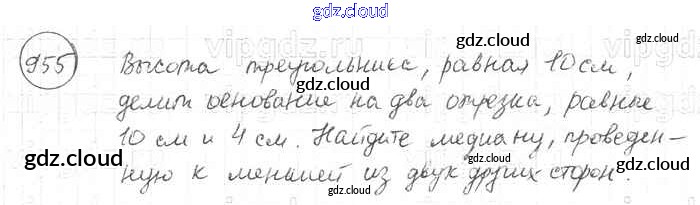 gdz.cloud
955 Высота треугольника, равная 10 см,
делит основание на два отрезка, равные
10 см и 4 см. Найдите медиану, проведен-
ную к меньшей из двух других сторон.
gdz.cloud
gdz.cloud
gdz.cloud
gdz.cloud
gdz.cloud
gdz.cloud
gdz.cloud
vipgdz.ru